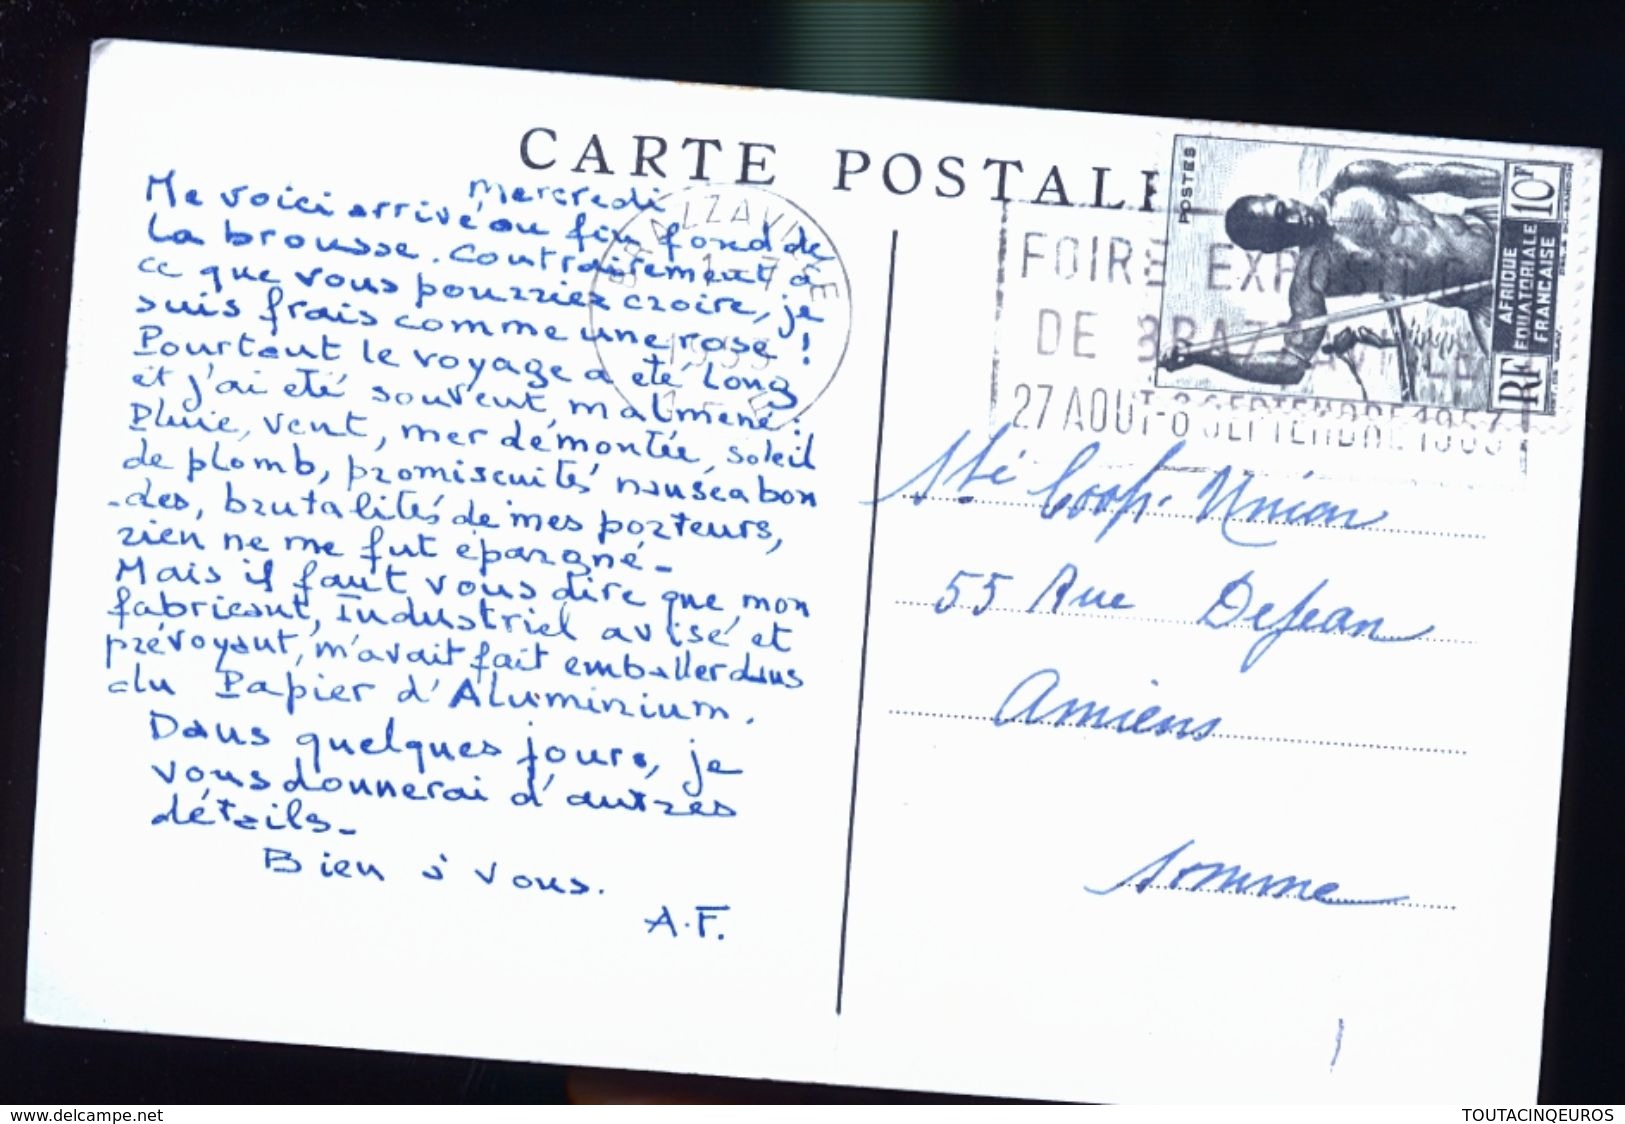 CARTE POSTALE
Mercredi
Me voici arrivé au fin fond de
la brousse. Contrairement à
ce que vous pourriez croire, je
suis frais comme une rose !
Pourtant le voyage a été long
et j'ai été souvent malmené :
Pluie, vent, mer démontée, soleil
de plomb, promiscuités nauseabon
-des, brutalités de mes porteurs,
rien ne me fut épargné -
Mais il faut vous dire que mon
fabricant, Industriel avisé et
prévoyant, m'avait fait emballer dans
du Papier d'Aluminium.
Dans quelques jours, je
vous donnerai d'autres
détails -
Bien à vous.
A.F.
BRAZZAVILLE
1953
A.E.F
FOIRE EXPOSITION
DE BRAZZAVILLE
27 AOUT-6 SEPTEMBRE 1953
POSTES
10F
AFRIQUE
EQUATORIALE
FRANÇAISE
RF
Sté Coop. Union
55 Rue Dejean
Amiens
Somme
www.delcampe.net
TOUTACINQEUROS